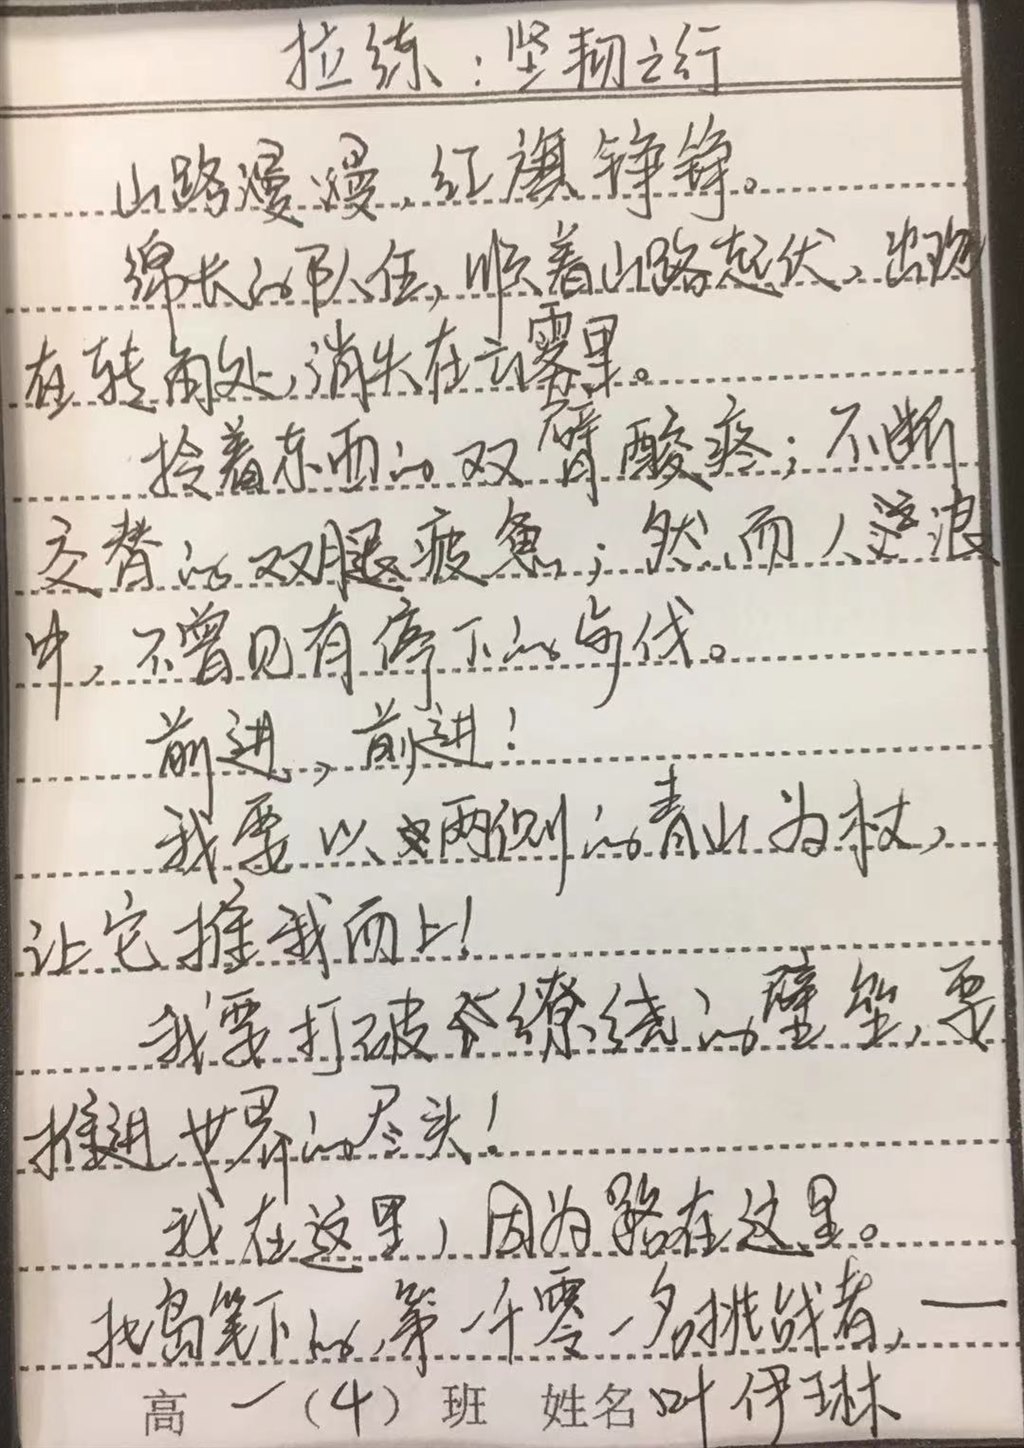 拉练：坚韧之行
山路漫漫，红旗铮铮。
绵长的队伍，顺着山路起伏，出现
在转角处，消失在云雾里。
拎着东西的双臂酸疼；不断
交替的双腿疲惫；然而人浪
中，不曾见有停下的步伐。
前进，前进！
我要以两侧的青山为杖，
让它推我而上！
我要打破缭绕的壁垒，要
推进世界的尽头！
我在这里，因为路在这里。
北岛笔下的，第一千零一名挑战者，—
高一（4）班 姓名叶伊琳